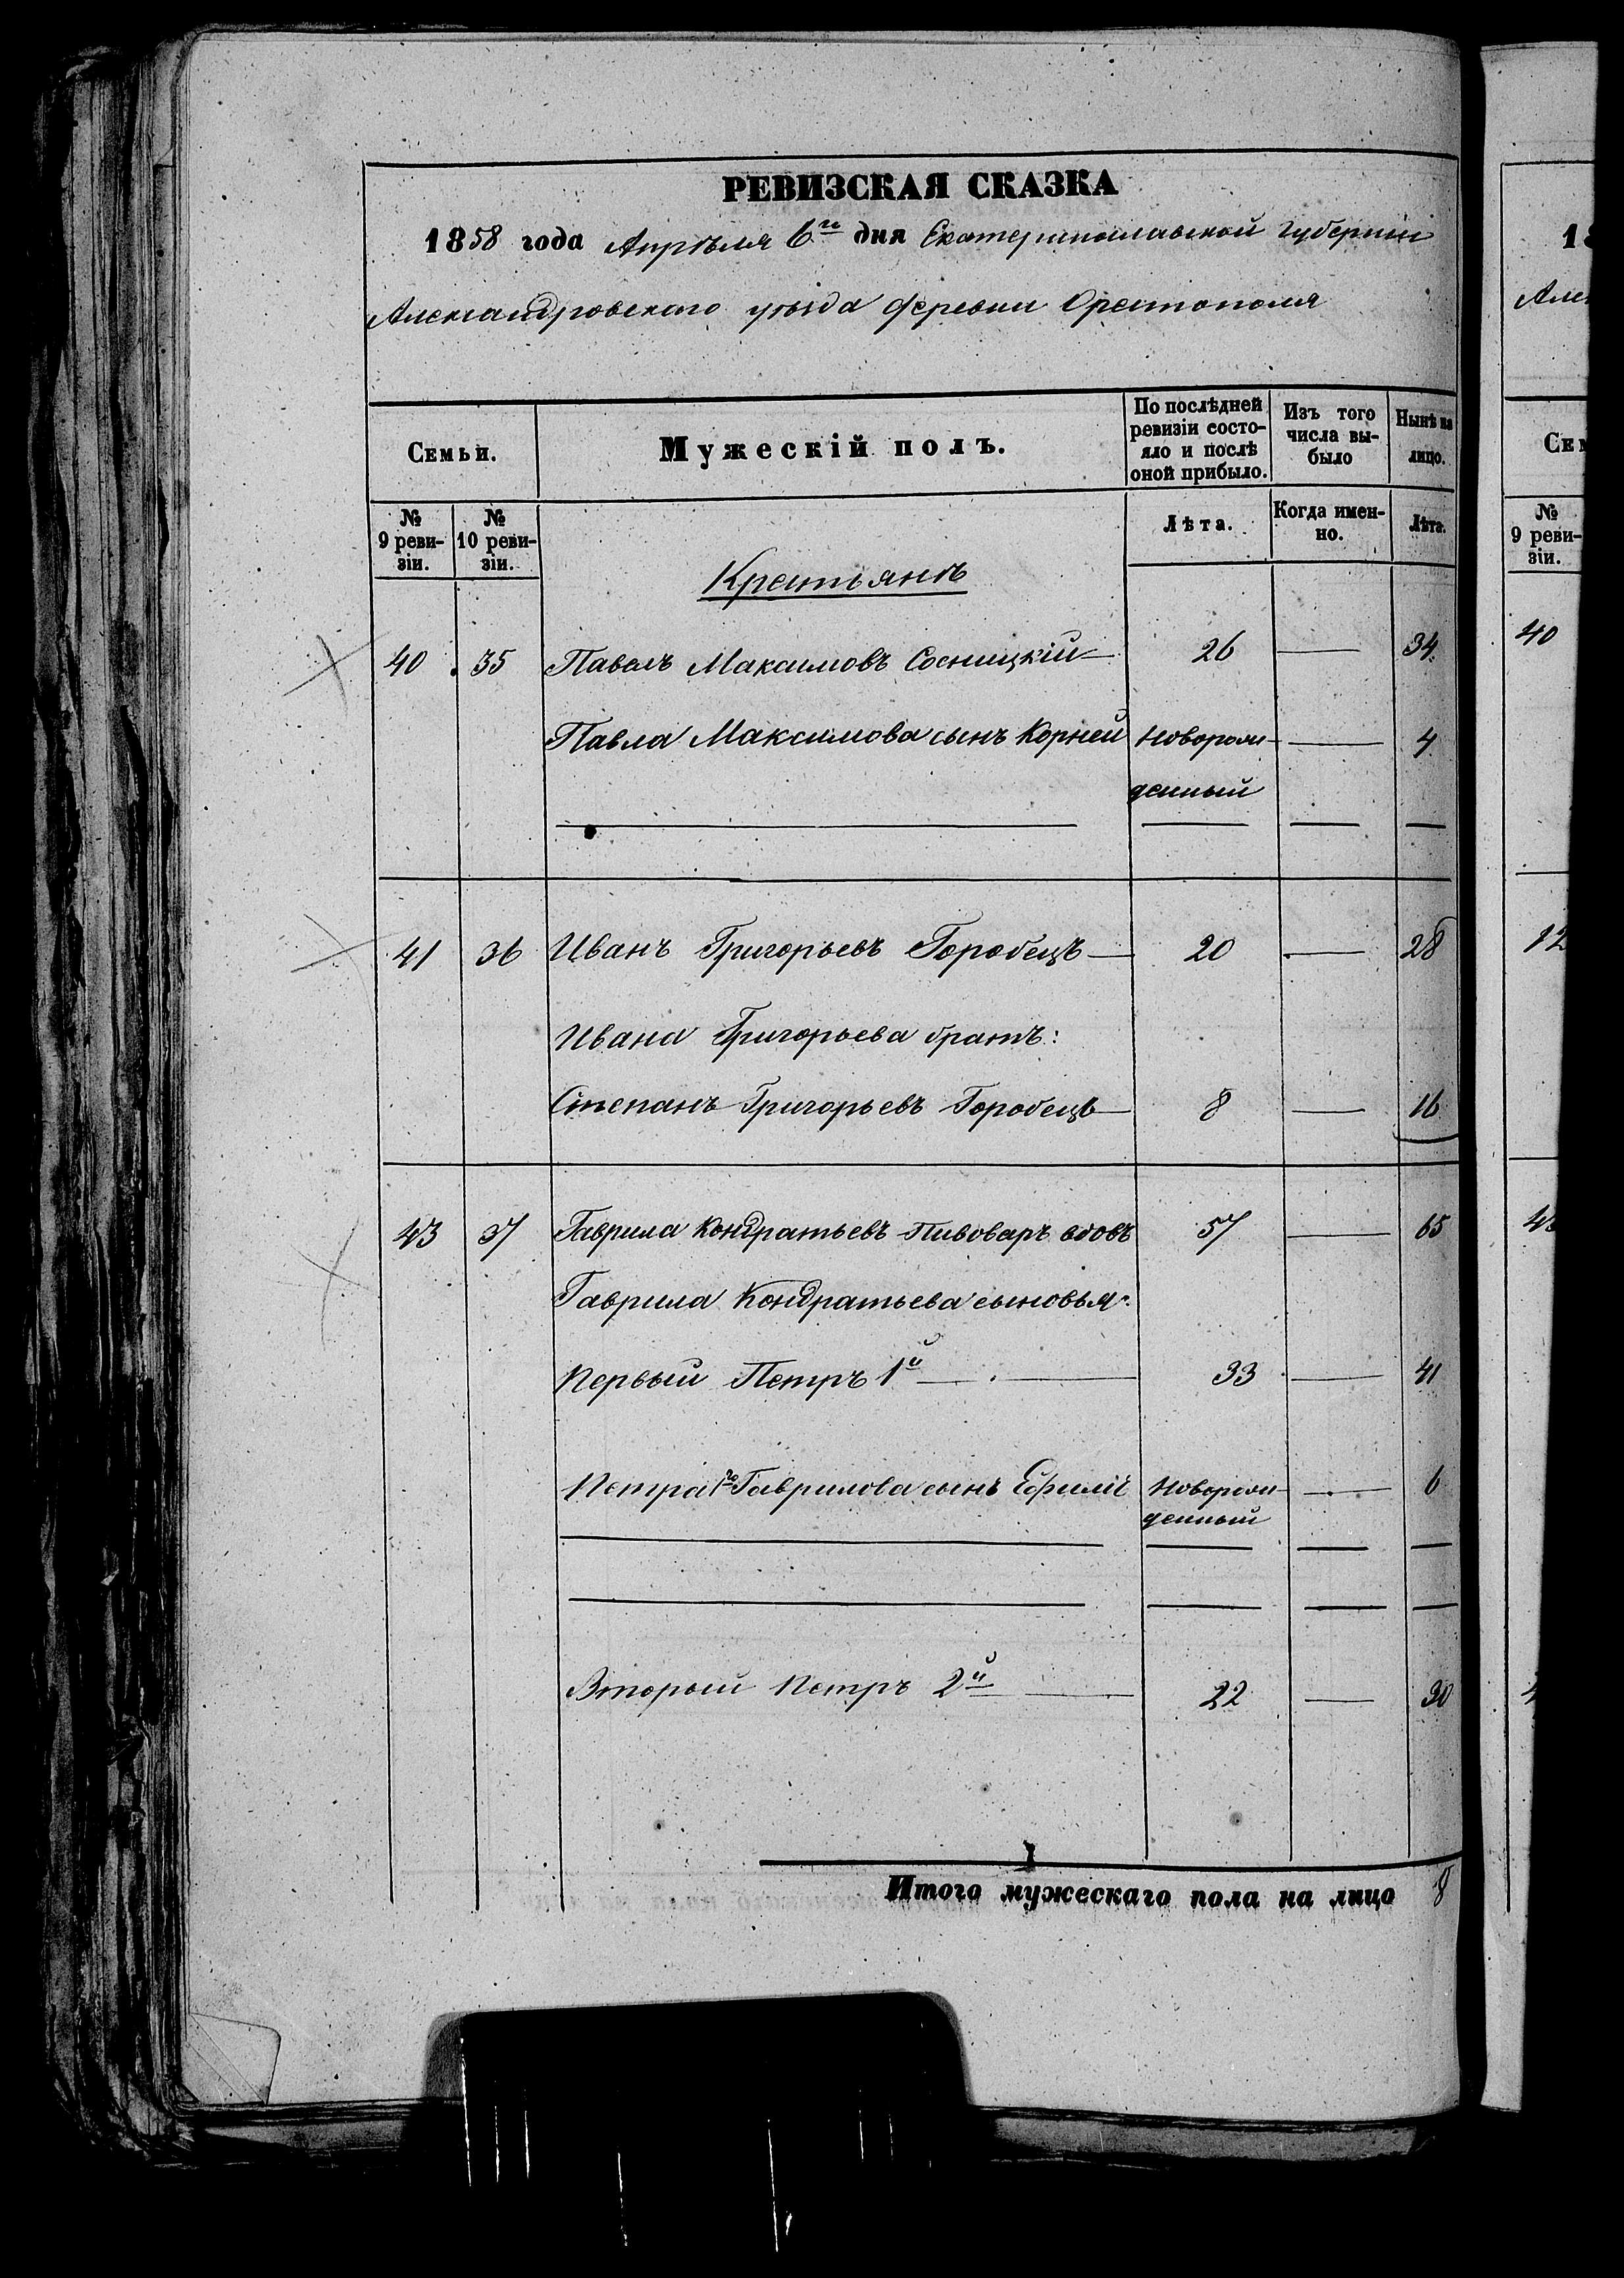 РЕВИЗСКАЯ СКАЗКА
1858 года Апрѣля 6го дня Екатеринославской Губерніи
Александровскаго уѣзда деревни Орестополя
Семьи.
Мужескій полъ.
По послѣдней ревизіи состояло и послѣ оной прибыло.
Изъ того числа выбыло
Нынѣ на лицо.
№ 9 ревизіи.
№ 10 ревизіи.
Лѣта.
Когда именно.
Лѣта.
Крестьянъ
40 35 Павелъ Максимовъ Сосницкій 26 — 34.
Павла Максимова сынъ Корней Новорож- — 4
денный
41 36 Иванъ Григорьевъ Горобецъ 20 — 28
Ивана Григорьева братъ:
Степанъ Григорьевъ Горобецъ 8 — 16
43 37 Гаврила Кондратьевъ Пивоваръ вдовъ 57 — 65
Гаврила Кондратьева сыновья:
Первый Петръ 1й — 33 — 41
Петра 1го Гаврилова сынъ Ефимъ Новорож- — 6
денный
Второй Петръ 2й — 22 — 30
Итого мужескаго пола на лицо 8
18
Алек
Сем
№ 9 ревизіи.
40